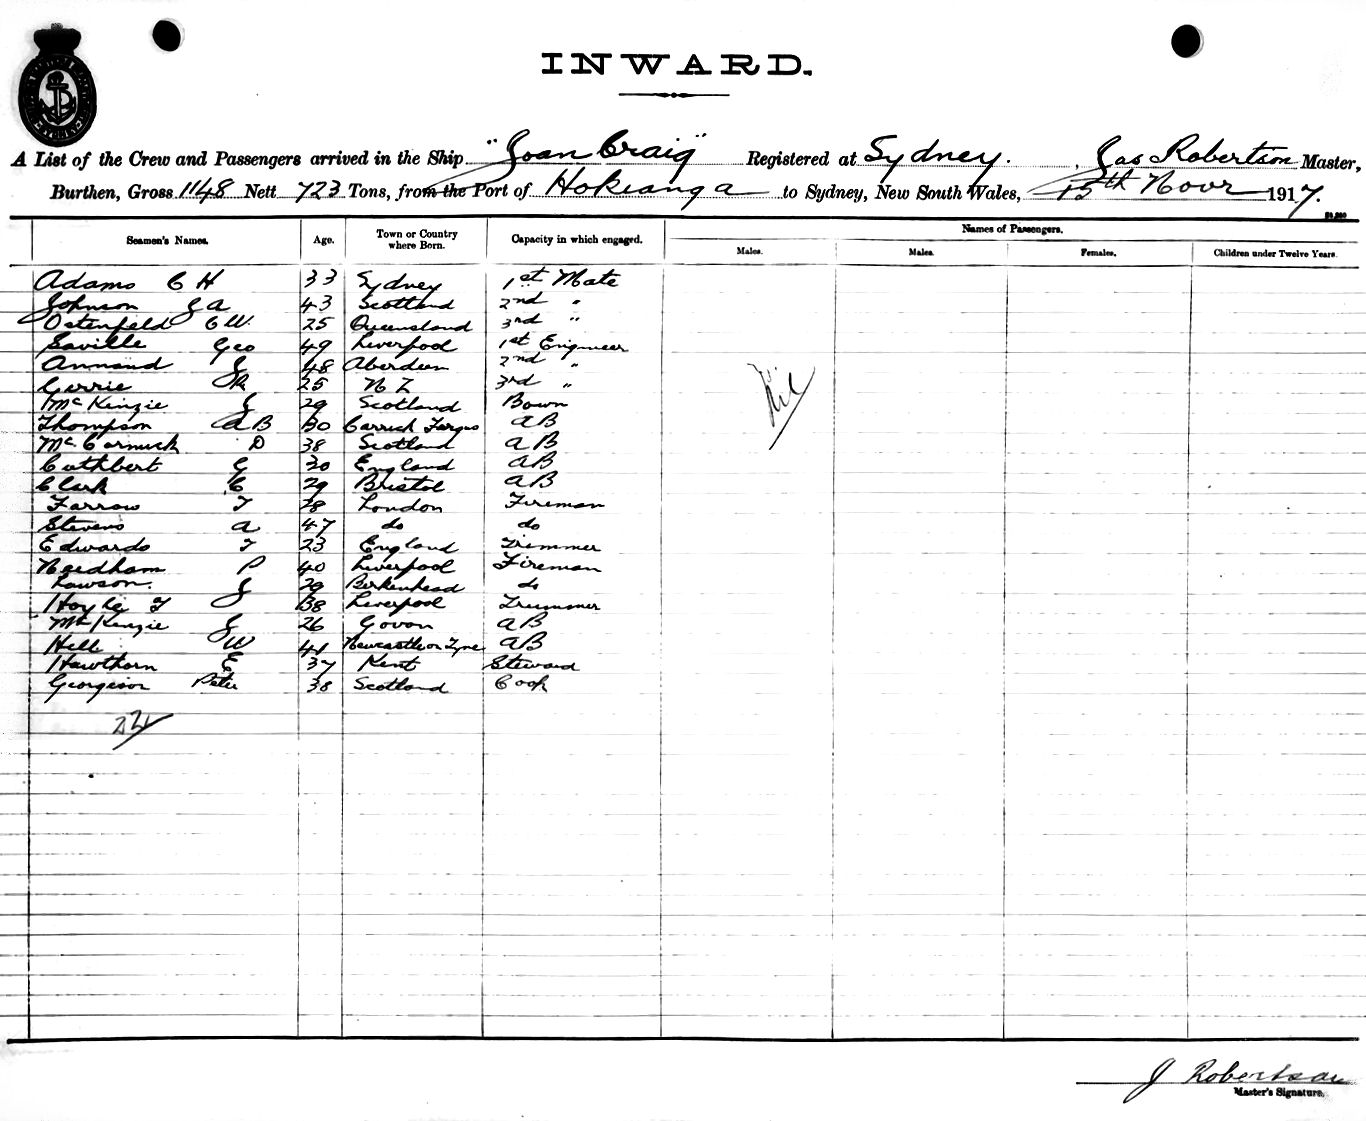 INWARD.
A List of the Crew and Passengers arrived in the Ship "Joan Craig" Registered at Sydney. , Jas Robertson Master,
Burthen, Gross 1148 Nett 723 Tons, from the Port of Hokianga to Sydney, New South Wales, 15th Novr 1917.
Seamen's Names. Age. Town or Country where Born. Capacity in which engaged. Names of Passengers.
Males. Males. Females. Children under Twelve Years.
Adams C H 33 Sydney 1st Mate
Johnson J A 43 Scotland 2nd "
Ostenfeld C W. 25 Queensland 3rd "
Saville Geo 49 Liverpool 1st Engineer
Annand J 48 Aberdeen 2nd "
Gerrie R 25 N Z 3rd "
McKenzie J 29 Scotland Bosun
Thompson A B 30 Carrick Fergus A B
McCormick D 38 Scotland A B
Cuthbert G 30 England A B
Clark C 29 Bristol A B
Farrow T 28 London Fireman
Stevens A 47 do do
Edwards T 23 England Trimmer
Needham P 40 Liverpool Fireman
Lawson. J 29 Birkenhead do
Hoyle T 38 Liverpool Trimmer
McKenzie J 26 Govan A B
Hill W 41 Newcastle on Tyne A B
Hawthorn E 37 Kent Steward
Georgeson Peter 38 Scotland Cook
Nil
22
J Robertson
Master's Signature.